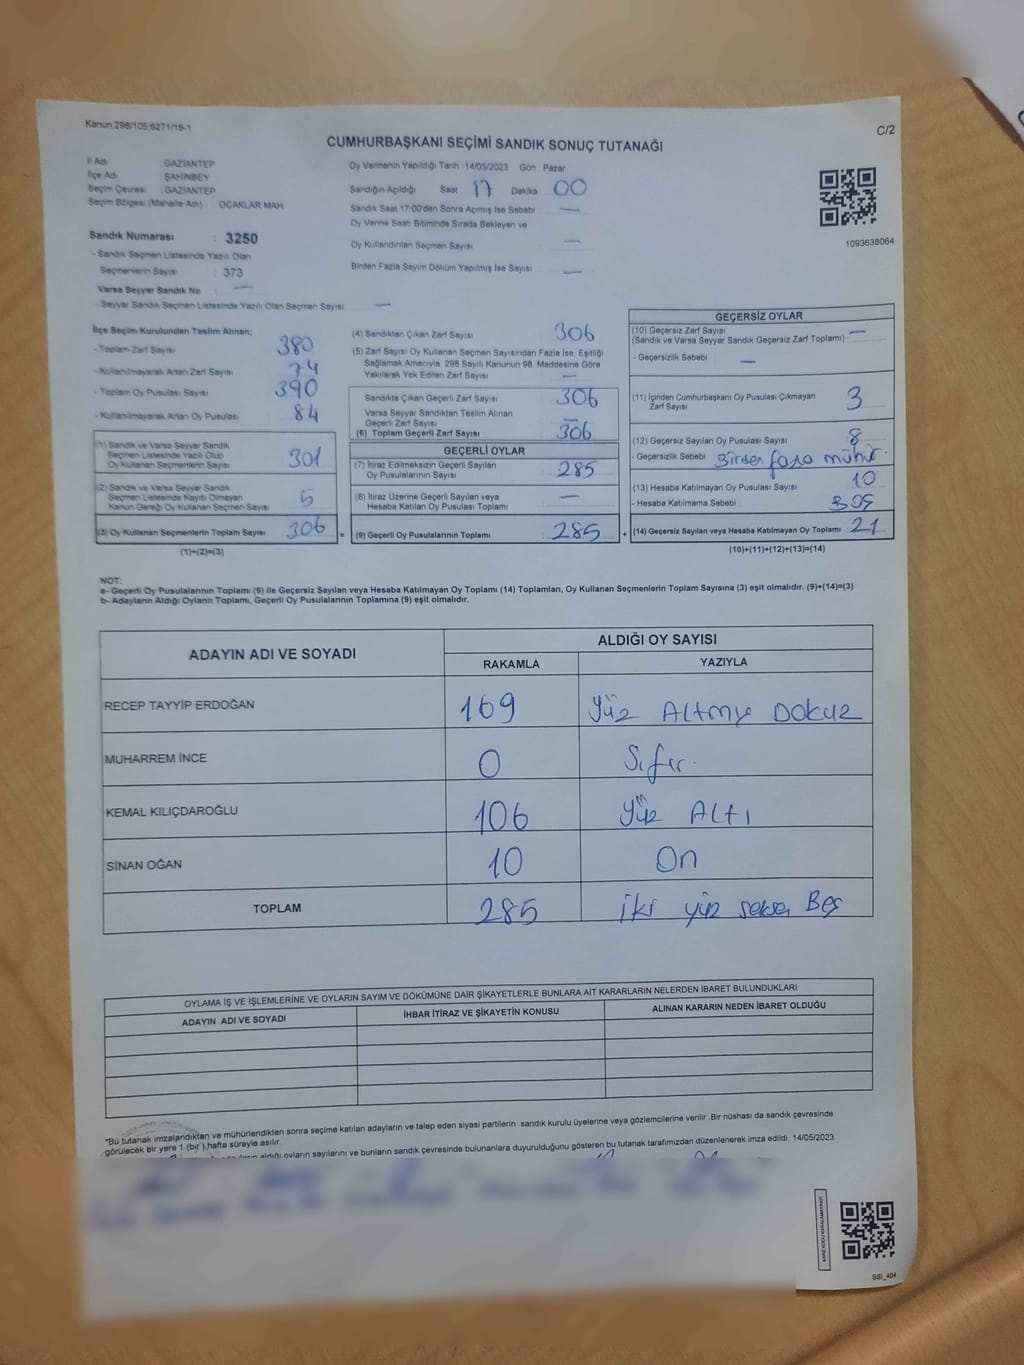 Kanun:298/105;6271/18-1
C/2
CUMHURBAŞKANI SEÇİMİ SANDIK SONUÇ TUTANAĞI
İl Adı GAZİANTEP
İlçe Adı ŞAHİNBEY
Seçim Çevresi : GAZİANTEP
Seçim Bölgesi (Mahalle Adı) OCAKLAR MAH
Sandık Numarası : 3250
- Sandık Seçmen Listesinde Yazılı Olan
Seçmenlerin Sayısı 373
Varsa Seyyar Sandık No —
- Seyyar Sandık Seçmen Listesinde Yazılı Olan Seçmen Sayısı —
Oy Vermenin Yapıldığı Tarih :14/05/2023 Gün : Pazar
Sandığın Açıldığı Saat 17 Dakika 00
Sandık Saat 17:00'den Sonra Açılmış İse Sebebi —
Oy Verme Saati Bitiminde Sırada Bekleyen ve
Oy Kullandırılan Seçmen Sayısı —
Birden Fazla Sayım Döküm Yapılmış İse Sayısı —
1093638064
İlçe Seçim Kurulundan Teslim Alınan;
- Toplam Zarf Sayısı 380
- Kullanılmayarak Artan Zarf Sayısı 74
- Toplam Oy Pusulası Sayısı 390
- Kullanılmayarak Artan Oy Pusulası 84
(1) Sandık ve Varsa Seyyar Sandık
Seçmen Listesinde Yazılı Olup
Oy Kullanan Seçmenlerin Sayısı 301
(2) Sandık ve Varsa Seyyar Sandık
Seçmen Listesinde Kayıtlı Olmayan
Kanun Gereği Oy Kullanan Seçmen Sayısı 5
(3) Oy Kullanan Seçmenlerin Toplam Sayısı 306 =
(1)+(2)=(3)
(4) Sandıktan Çıkan Zarf Sayısı 306
(5) Zarf Sayısı Oy Kullanan Seçmen Sayısından Fazla İse, Eşitliği
Sağlamak Amacıyla, 298 Sayılı Kanunun 98. Maddesine Göre
Yakılarak Yok Edilen Zarf Sayısı —
Sandıkta Çıkan Geçerli Zarf Sayısı 306
Varsa Seyyar Sandıktan Teslim Alınan
Geçerli Zarf Sayısı —
(6) Toplam Geçerli Zarf Sayısı 306
GEÇERLİ OYLAR
(7) İtiraz Edilmeksizin Geçerli Sayılan
Oy Pusulasının Sayısı 285
(8) İtiraz Üzerine Geçerli Sayılan veya
Hesaba Katılan Oy Pusulası Toplamı —
(9) Geçerli Oy Pusulalarının Toplamı 285 +
GEÇERSİZ OYLAR
(10) Geçersiz Zarf Sayısı —
(Sandık ve Varsa Seyyar Sandık Geçersiz Zarf Toplamı)
- Geçersizlik Sebebi —
(11) İçinden Cumhurbaşkanı Oy Pusulası Çıkmayan
Zarf Sayısı 3
(12) Geçersiz Sayılan Oy Pusulası Sayısı 8
- Geçersizlik Sebebi Birden fazla mühür.
(13) Hesaba Katılmayan Oy Pusulası Sayısı 10
- Hesaba Katılmama Sebebi
(14) Geçersiz Sayılan veya Hesaba Katılmayan Oy Toplamı 21
(10)+(11)+(12)+(13)=(14)
NOT:
a- Geçerli Oy Pusulalarının Toplamı (9) ile Geçersiz Sayılan veya Hesaba Katılmayan Oy Toplamı (14) Toplamları, Oy Kullanan Seçmenlerin Toplam Sayısına (3) eşit olmalıdır. (9)+(14)=(3)
b- Adayların Aldığı Oyların Toplamı, Geçerli Oy Pusulalarının Toplamına (9) eşit olmalıdır.
ADAYIN ADI VE SOYADI
ALDIĞI OY SAYISI
RAKAMLA YAZIYLA
RECEP TAYYİP ERDOĞAN 169 Yüz Altmış Dokuz
MUHARREM İNCE 0 Sıfır.
KEMAL KILIÇDAROĞLU 106 Yüz Altı
SİNAN OĞAN 10 On
TOPLAM 285 iki yüz seksen Beş
OYLAMA İŞ VE İŞLEMLERİNE VE OYLARIN SAYIM VE DÖKÜMÜNE DAİR ŞİKAYETLERLE BUNLARA AİT KARARLARIN NELERDEN İBARET BULUNDUKLARI
ADAYIN ADI VE SOYADI İHBAR İTİRAZ VE ŞİKAYETİN KONUSU ALINAN KARARIN NEDEN İBARET OLDUĞU
*Bu tutanak imzalandıktan ve mühürlendikten sonra seçime katılan adayların ve talep eden siyasi partilerin sandık kurulu üyelerine veya gözlemcilerine verilir. Bir nüshası da sandık çevresinde
görülecek bir yere 1 (bir) hafta süreyle asılır.
aldığı oyların sayılarını ve bunların sandık çevresinde bulunanlara duyurulduğunu gösteren bu tutanak tarafımızdan düzenlenerek imza edildi. 14/05/2023
SSI_404